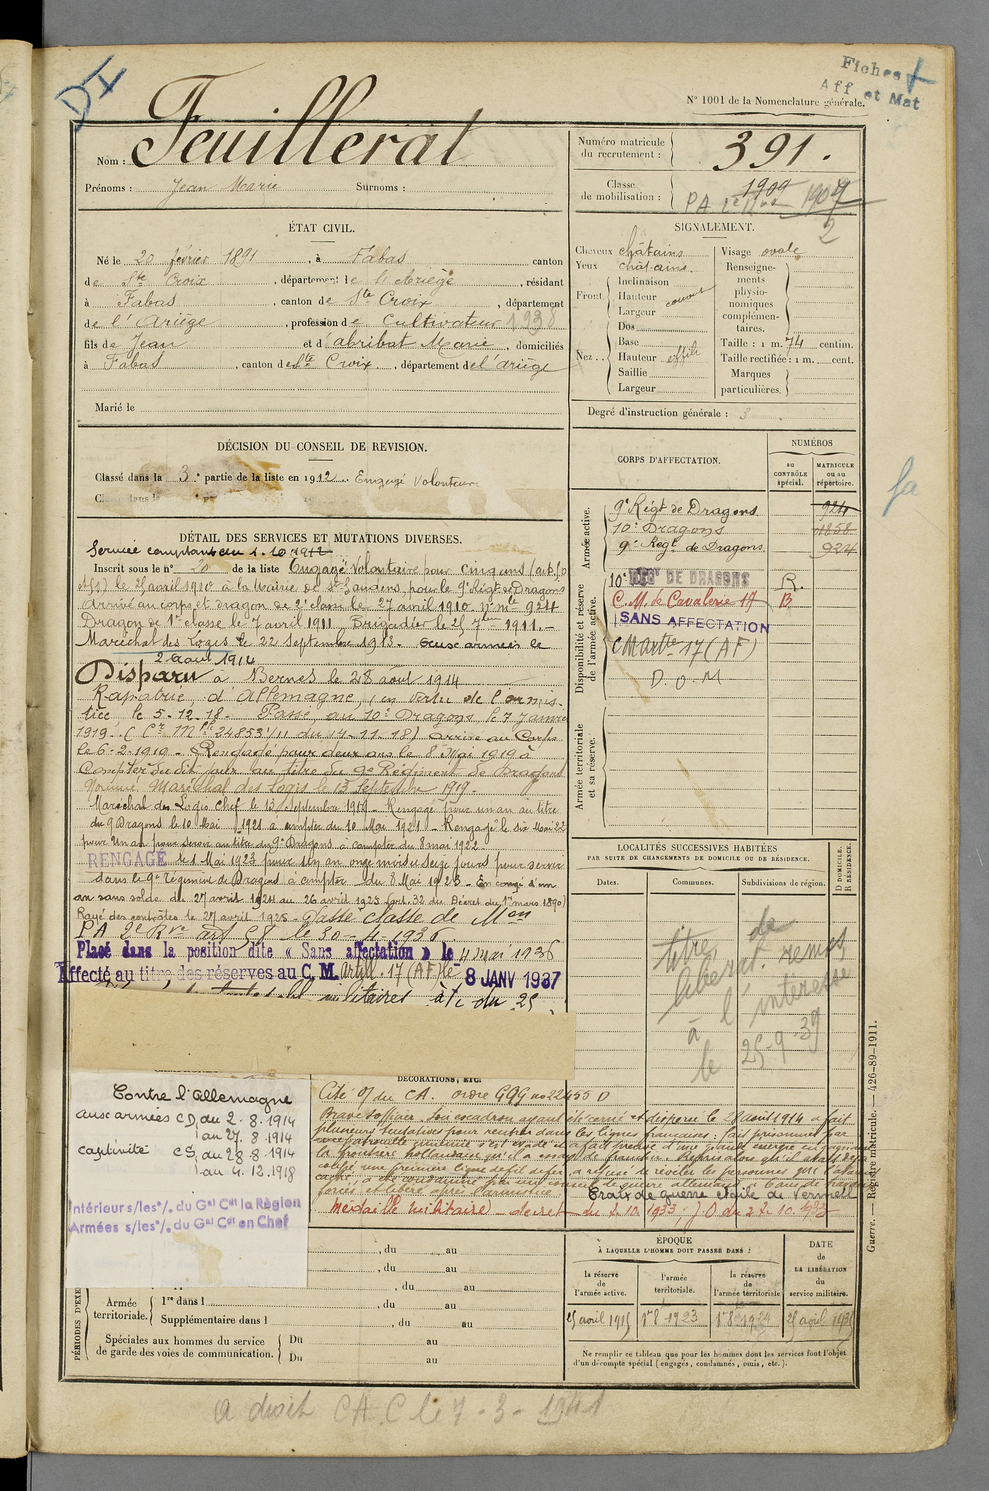 DI
Fiches
Aff et Mat
N° 1001 de la Nomenclature générale.
Nom : Feuillerat
Prénoms : Jean Marie Surnoms :
Numéro matricule du recrutement : 391.
Classe de mobilisation : 1909 1907
PA
2
ÉTAT CIVIL.
Né le 20 février 1891, à Fabas canton
de Ste Croix, département de l'Ariège, résidant
à Fabas, canton de Ste Croix, département
de l'Ariège, profession de Cultivateur 1938
fils de Jean et d'Abribat Marie, domiciliés
à Fabas, canton de Ste Croix, département de l'Ariège
Marié le
SIGNALEMENT.
Cheveux châtains
Yeux châtains.
Front. Inclinaison
Hauteur couvert
Largeur
Nez... Dos
Base
Hauteur effilé
Saillie
Largeur
Visage ovale
Renseignements physionomiques complémentaires.
Taille : 1 m. 74 centim.
Taille rectifiée : 1 m. cent.
Marques particulières.
Degré d'instruction générale : 3
DÉCISION DU CONSEIL DE REVISION.
Classé dans la 3e partie de la liste en 1912. Engagé Volontaire
CORPS D'AFFECTATION.
NUMÉROS
au CONTRÔLE spécial.
MATRICULE ou au répertoire.
Armée active.
9e Régt de Dragons 924
10e Dragons 1858
9e Régt de Dragons. 924
Disponibilité et réserve de l'armée active.
10e REGt DE DRAGONS R.
C. M. de Cavalerie 17 B
SANS AFFECTATION
C M artie 17 (AF)
D. O. M
Armée territoriale et sa réserve.
DÉTAIL DES SERVICES ET MUTATIONS DIVERSES.
Service comptant du 1.10.1912
Inscrit sous le n° 20 de la liste Engagé Volontaire pour cinq ans
le 25 avril 1910 à la Mairie de St Gaudens, pour le 9e Régt de Dragons
Arrivé au corps et dragon de 2e classe le 27 avril 1910 n° mle 924
Dragon de 1re classe le 7 avril 1911. Brigadier le 25 7bre 1911.
Maréchal des Logis le 22 Septembre 1913. Aux armées le
2 Août 1914
Disparu à Bernes le 28 août 1914
Rapatrié d'Allemagne, en vertu de l'armis-
tice, le 5-12-18. Passé au 10e Dragons le 7 janvier
1919. (Cre Mlle 24853 1/11 du 14-11-18) arrivé au Corps
le 6-2-1919. Rengagé pour deux ans le 8 Mai 1919 à
compter dudit jour au titre du 9e Régiment de Dragons
Nommé Maréchal des Logis le 13 Septembre 1919.
Maréchal des Logis Chef le 13 Septembre 1919. Rengagé pour un an au titre
du 9 Dragons le 10 Mai 1921 à compter du 10 Mai 1921. Rengagé le six Mai 22
pour un an pour servir au titre du 9e Dragons à compter du 8 mai 1922
RENGAGÉ le 1 Mai 1923 pour un an onze mois et seize jours pour servir
dans le 9e Régiment de Dragons à compter du 8 Mai 1923. En congé d'un
an sans solde du 27 avril 1924 au 26 avril 1925 (art. 32 du Décret du 1er mars 1890)
Rayé des contrôles le 27 avril 1925. Passe classe de Mon
PA 2e Rve art 58 le 30-4-1936
Placé dans la position dite « Sans affectation » le 4 mai 1936
Affecté au titre des réserves au C. M. Artill. 17 (AF) le 8 JANV 1937
militaires à/c du 25
LOCALITÉS SUCCESSIVES HABITÉES
PAR SUITE DE CHANGEMENTS DE DOMICILE OU DE RÉSIDENCE.
Dates. Communes. Subdivisions de région.
D DOMICILE. R RÉSIDENCE.
titre de
libérat remis
à l'intéressé
le 25-9-39
Contre l'Allemagne
aux armées CD, du 2.8.1914
au 27.8.1914
captivité CS, du 28.8.1914
au 4.12.1918
Intérieur s/les °/. du Gal Cdt la Région
Armées s/les °/. du Gal Cdt en Chef
DÉCORATIONS, ETC.
Cité O/ du CA. ordre GQG no 22455 D
Brave sous officier. Son escadron ayant été cerné et dispersé le 28 août 1914 a fait
plusieurs tentatives pour rentrer dans les lignes françaises ; fait prisonnier par
une patrouille ennemie s'est évadé
la frontière hollandaise qu'il a essayé de franchir. Repris alors qu'il avait déjà
coupé une première ligne de fil de fer, a refusé de révéler les personnes qui l'avaient
caché, a été condamné par un conseil de guerre allemand à 6 ans de travaux
forcés et libéré après l'armistice
Croix de guerre étoile de Vermeil
Médaille Militaire - décret du 2.10.1933, J.O du 2 10.1933
, du au
, du au
, du au
PÉRIODES D'EXE
Armée territoriale.
1re dans l , du au
Supplémentaire dans l , du au
Spéciales aux hommes du service de garde des voies de communication.
Du au
Du au
ÉPOQUE
À LAQUELLE L'HOMME DOIT PASSER DANS :
la réserve de l'armée active.
l'armée territoriale.
la réserve de l'armée territoriale
DATE de LA LIBÉRATION du service militaire.
25 avril 1915 1er 8 1923 1er 8 1929 25 avril 1935
Ne remplir ce tableau que pour les hommes dont les services font l'objet
d'un décompte spécial (engagés, condamnés, omis, etc.).
Guerre. — Registre matricule. — 426-89-1911.
a droit CAC le 7-3-1941